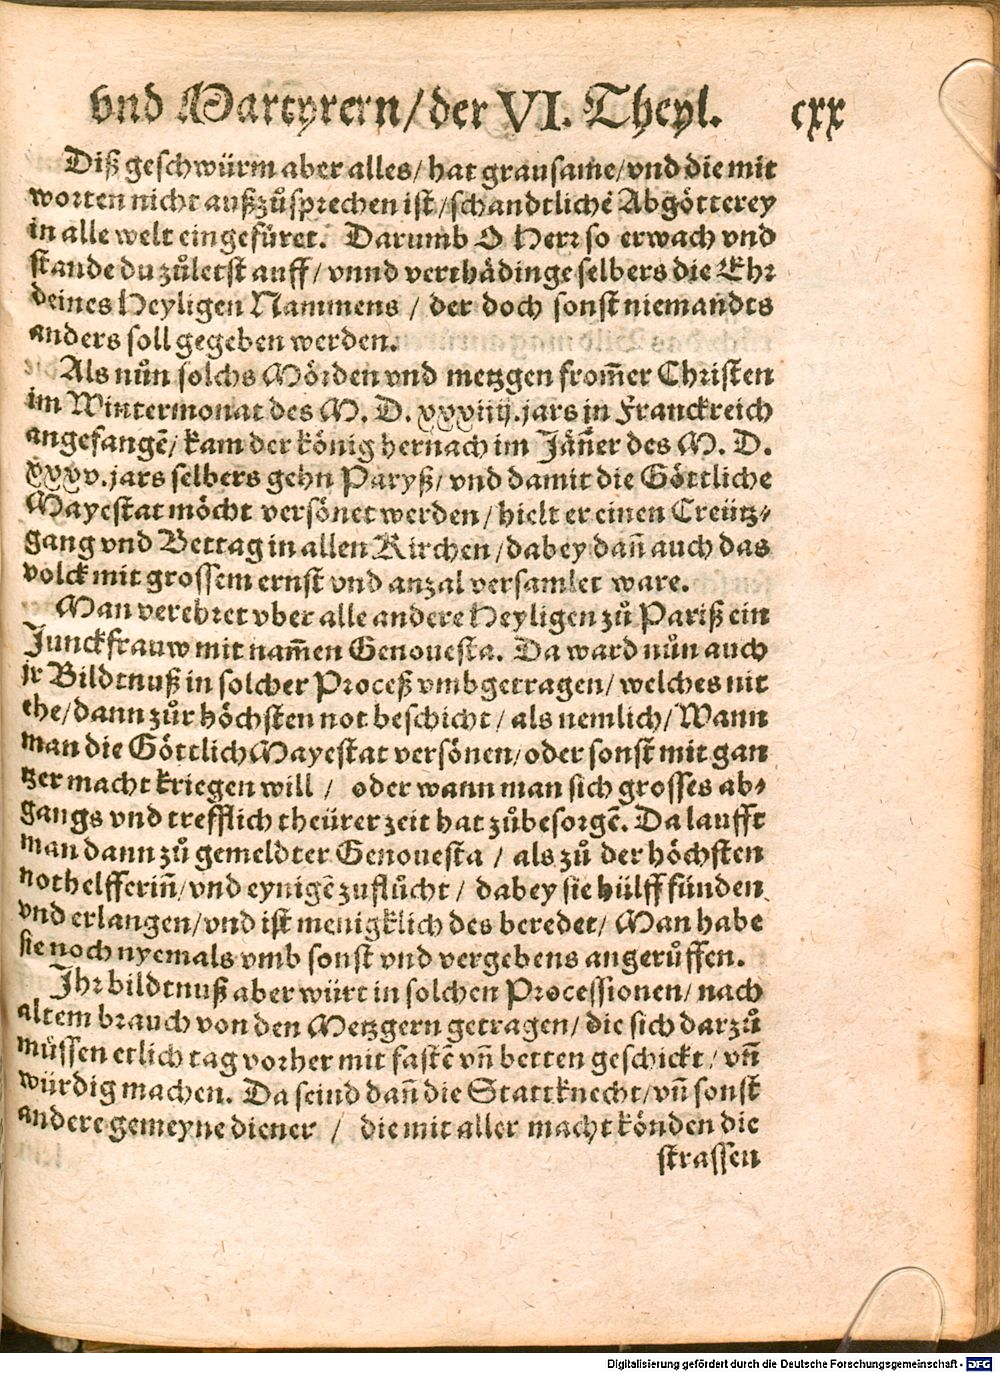 vnd Martyrern/der VI. Theyl. cxx
Diß geschwürm aber alles/hat grausame/vnd die mit
worten nicht außzůsprechen ist/schandtlichē Abgötterey
in alle welt eingefüret. Darumb O Herr so erwach vnd
stande du zůletst auff/vnnd verthädinge selbers die Ehr
deines Heyligen Nammens / der doch sonst niemandts
anders soll gegeben werden.
Als nůn solchs Mörden vnd metzgen from̄er Christen
im Wintermonat des M. D. xxxiiij. jars in Franckreich
angefangē/kam der könig hernach im Jän̄er des M. D.
xxxv. jars selbers gehn Paryß/vnd damit die Göttliche
Mayestat möcht versönet werden/hielt er einen Creütz-
gang vnd Bettag in allen Kirchen/dabey dañ auch das
volck mit grossem ernst vnd anzal versamlet ware.
Man verehret vber alle andere Heyligen zů Pariß ein
Junckfrauw mit nam̄en Genouesta. Da ward nůn auch
jr Bildtnuß in solcher Proceß vmbgetragen/welches nit
ehe/dann zůr höchsten not beschicht/als nemlich/Wann
man die Göttlich Mayestat versönen/oder sonst mit gan
tzer macht kriegen will / oder wann man sich grosses ab-
gangs vnd trefflich theürer zeit hat zůbesorgē. Da laufft
man dann zů gemeldter Genouesta / als zů der höchsten
nothelfferiñ/vnd eynigē zuflůcht / dabey sie hülff fünden
vnd erlangen/vnd ist menigklich des beredet/Man habe
sie noch nyemals vmb sonst vnd vergebens angerůffen.
Ihr bildtnuß aber würt in solchen Processionen/nach
altem brauch von den Metzgern getragen/die sich darzů
můssen etlich tag vorher mit fastē vñ betten geschickt/vñ
würdig machen. Da seind dañ die Stattknecht/vñ sonst
andere gemeyne diener / die mit aller macht könden die
strassen
Digitalisierung gefördert durch die Deutsche Forschungsgemeinschaft - DFG